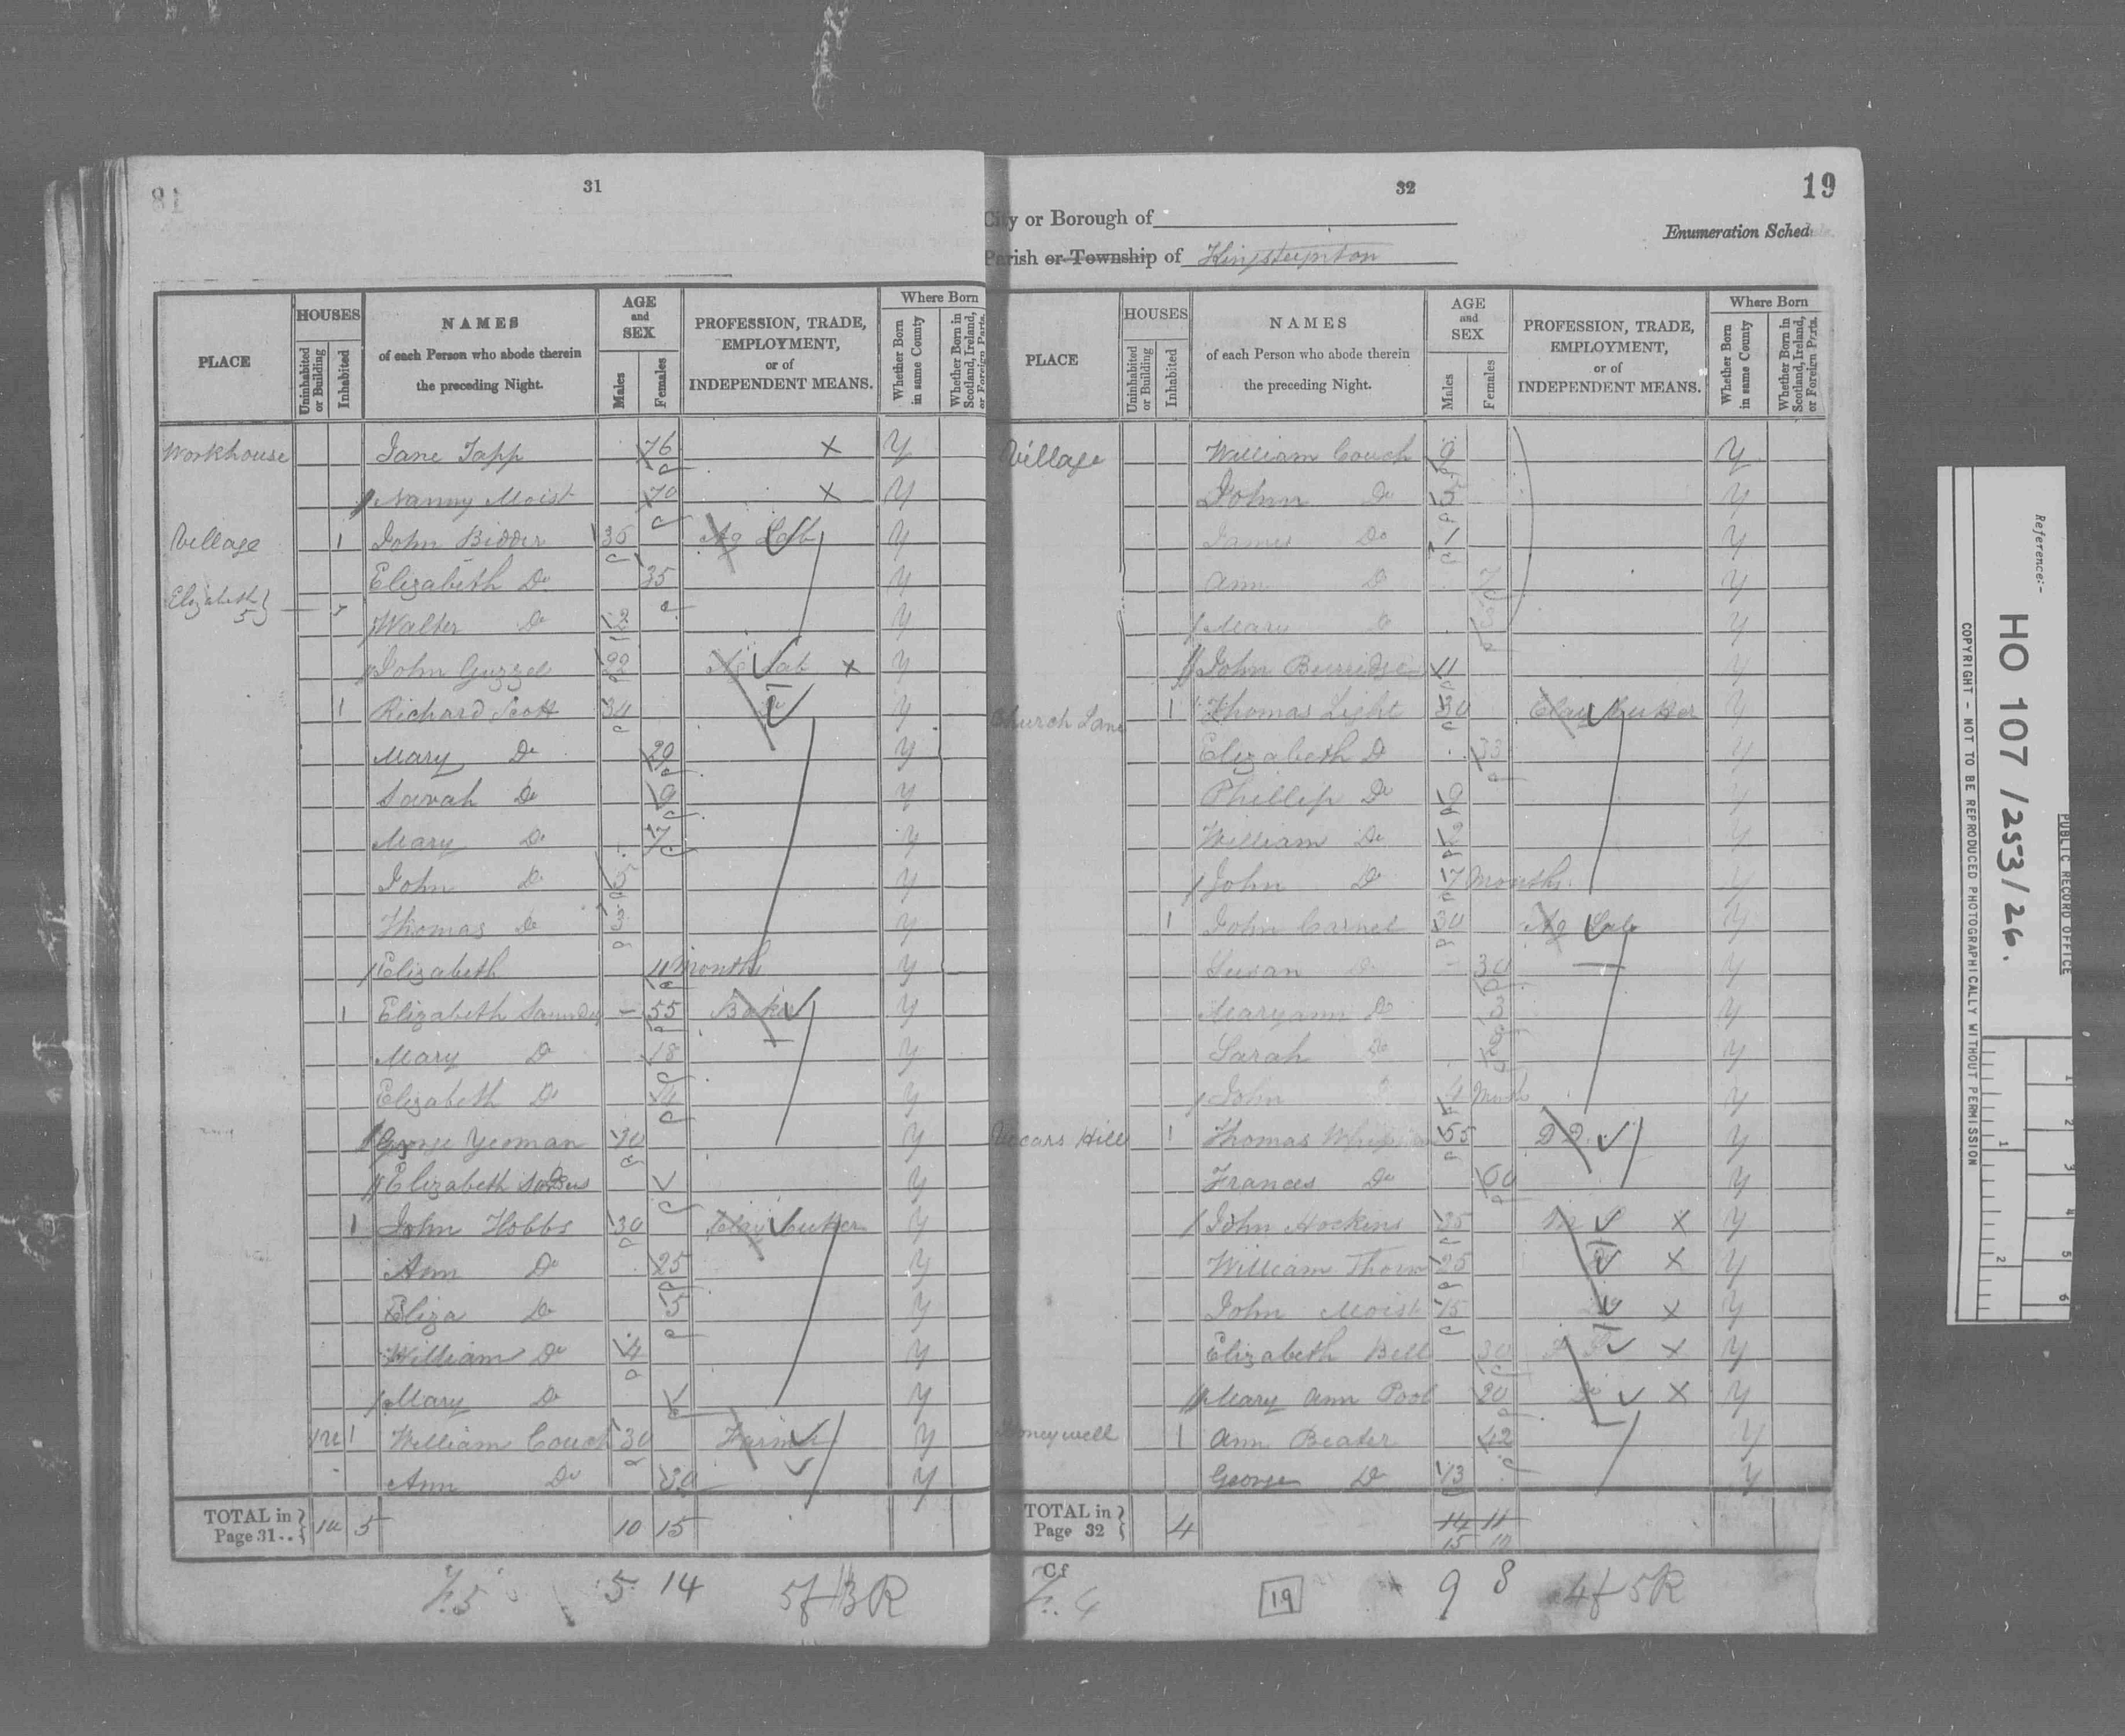 81
31
PLACE
HOUSES
Uninhabited or Building
Inhabited
NAMES
of each Person who abode therein
the preceding Night.
AGE
and
SEX
Males
Females
PROFESSION, TRADE,
EMPLOYMENT,
or of
INDEPENDENT MEANS.
Where Born
Whether Born in same County
Whether Born in Scotland, Ireland, or Foreign Parts.
Workhouse Jane Tapp 76 X Y
Nanny Moist 70 X Y
Village 1 John Bidder 35 Ag Lab Y
Elizabeth Do 35 Y
Elizabeth 5
Walter Do 2 Y
John Guzzel 22 Ag Lab X Y
1 Richard Scott 30 Do Y
Mary Do 29 Y
Sarah Do 9 Y
Mary Do 7 Y
John Do 5 Y
Thomas Do 3 Y
Elizabeth 11 Months Y
1 Elizabeth Saunders 55 Baker Y
Mary Do 18 Y
Elizabeth Do 14 Y
George Yeoman 30 Y
Elizabeth Y
1 John Hobbs 30 Clay Cutter Y
Ann Do 25 Y
Eliza Do 5 Y
William Do 4 Y
Mary Do Y
1u 1 William Couch 30 Farmer Y
Ann Do 30 Y
TOTAL in
Page 31.. 1u 5 10 15
5 14
32
19
City or Borough of
Enumeration Sched
Parish or Township of Kingsteignton
PLACE
HOUSES
Uninhabited or Building
Inhabited
NAMES
of each Person who abode therein
the preceding Night.
AGE
and
SEX
Males
Females
PROFESSION, TRADE,
EMPLOYMENT,
or of
INDEPENDENT MEANS.
Where Born
Whether Born in same County
Whether Born in Scotland, Ireland, or Foreign Parts.
Village William Couch 9 Y
John Do 5 Y
James Do 1 Y
Ann Do 7 Y
Mary Do Y
John Burridge 11 Y
Church Lane 1 Thomas Light 30 Clay Cutter Y
Elizabeth D 33 Y
Phillip Do 9 Y
William Do 2 Y
John D 7 Months Y
1 John Carnel 30 Ag Lab Y
Susan D 30 Y
Maryann Do 3 Y
Sarah Do 2 Y
John 4 Y
Vicars Hill 1 Thomas 55 D D. Y
Frances Do 60 Y
John Hockins 25 M S X Y
William Thorn 25 Do X Y
John Moist 15 Do X Y
Elizabeth Bell 30 F S X Y
Mary Ann Pool 20 Do X Y
Honeywell 1 Ann Beater 42 Y
George Do 13 Y
TOTAL in
Page 32 4 14 11
15 10
Cf
19
9 8
Reference:-
HO 107 /253/26.
PUBLIC RECORD OFFICE
COPYRIGHT - NOT TO BE REPRODUCED PHOTOGRAPHICALLY WITHOUT PERMISSION
1
2
1
2
3
4
5
6